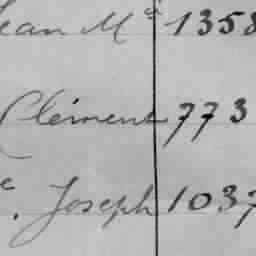 Jean Mc 1358
Clément 773
c. Joseph 1037